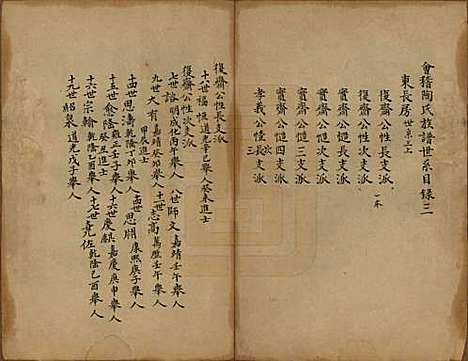 會稽陶氏族譜世系目錄三
東長房 世系三上
復齋公性長支派
復齋公性次支派
賓齋公愷長支派
賓齋公愷次支派
賓齋公愷三支派
賓齋公愷四支派
孝義公懂長支派
復齋公性長支派
十八世 福恆 道光辛巳舉人 癸未進士
復齋公性次支派
七世 諭 明成化丙午舉人 八世 師文 嘉靖壬午舉人
九世 大有 嘉靖 十一世 志高 萬曆壬午舉人
甲辰進士
十四世 思濤 乾隆 十四世 思淵 康熙庚子舉人
十五世 愈隆 雍正壬子舉人 十六世 慶麒 嘉慶庚申舉人
十六世 宗翰 乾隆己酉舉人 癸丑進士 十七世 堯佐 乾隆己酉舉人
十九世 昭製 道光戊子舉人